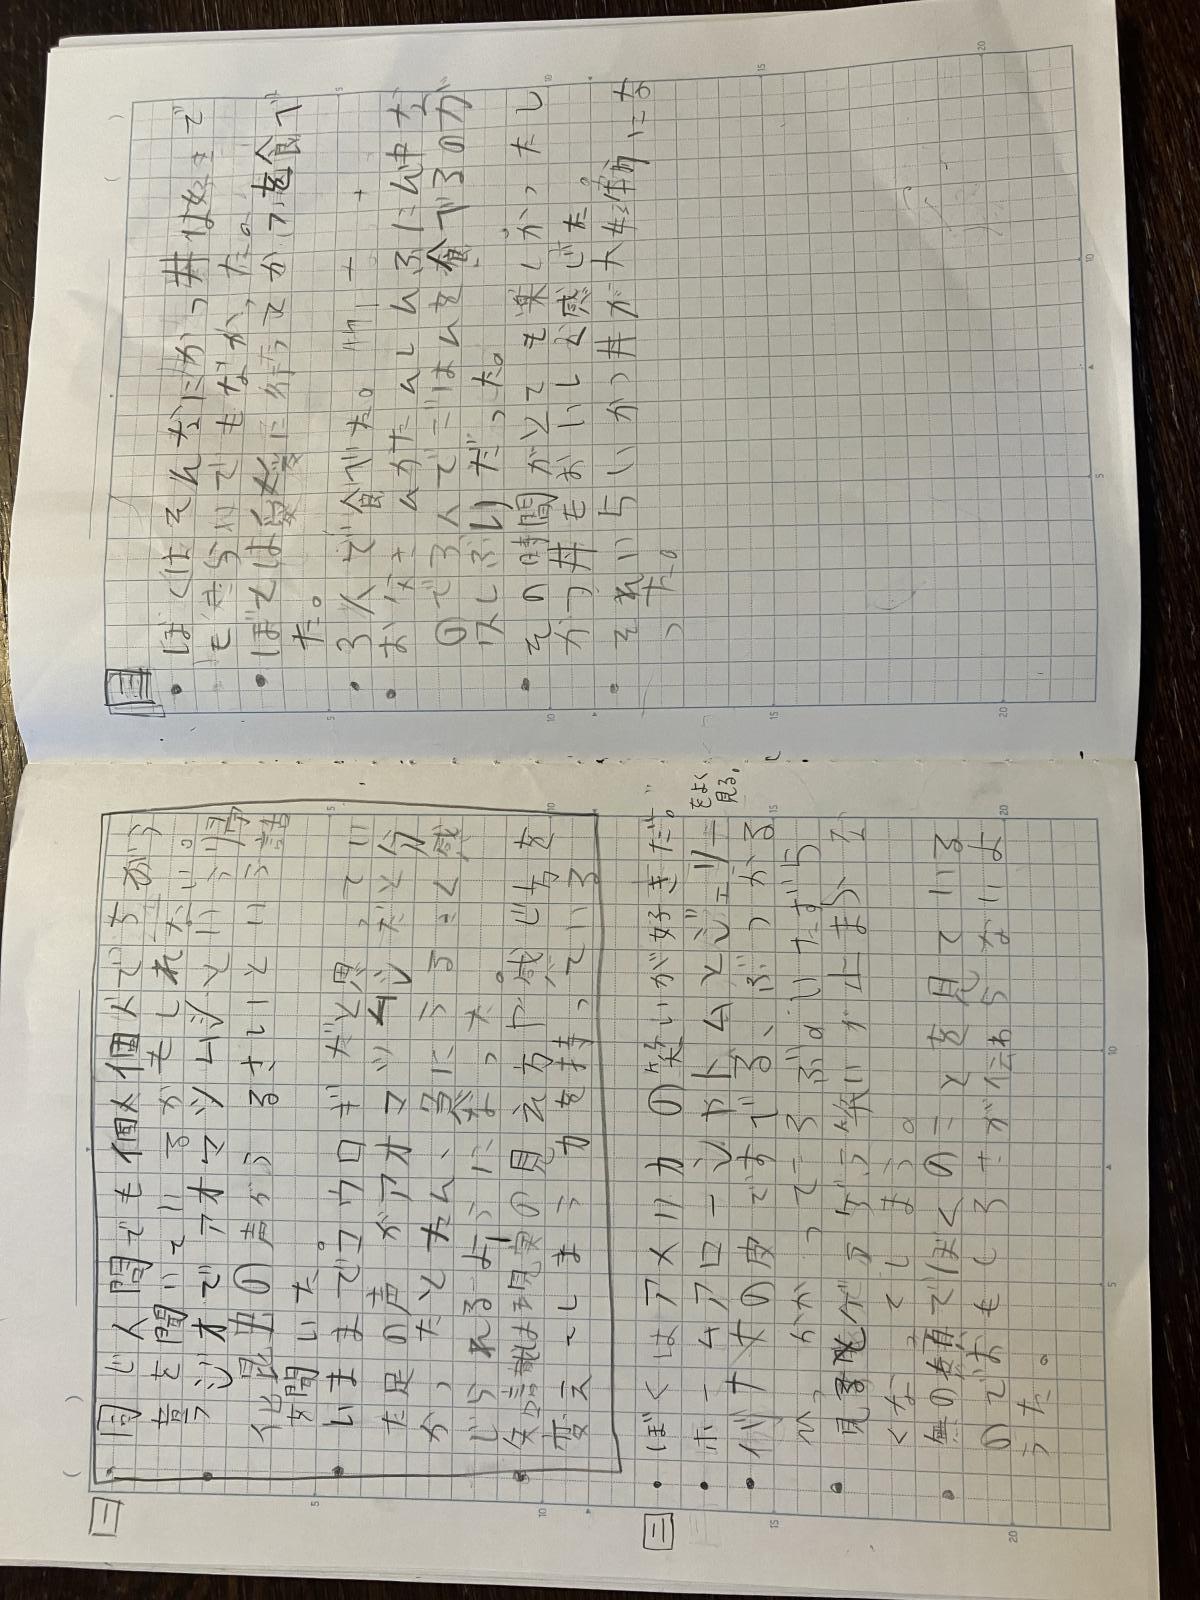 二
・同じ人間でも個人個人でちがう
音を聞いているかもしれない。
・ラジオでアオマツムシという外
昆虫の声がうるさいという話
を聞いた。
・いままでコウロギだと思ってい
た足の声がアオマツムシだと分
かったとたん、急にうるさく感
じられるようになった。
・知識は現実の見え方や感じ方を
変えてしまう力を持っている
三
・ぼくはアメリカの笑いが好きだ。
・ホームアローンやトムとジェリー
をよく
見る。
・バナナの皮ですべる、ぶつかる
ひっかかってころぶのいたずら
・見るとゲラゲラ笑いが止まらな
くなってしまう。
・無の表情でぼくのことを見ている
のでおもしろさが伝わらないよ
うだ。
三
・ぼくはそんなにかつ丼は好きで
もきらいでもなかった。
・ぼとは家に行ってかつを食べ
た。
・3人で食べた。
・お父さんがたんしんふにん中な
ので3人でごはんを食べるのが
久しぶりだった。
・その時間がとても楽しかったし
かつ丼もおいしく感じた。
・それいらいかつ丼が大好物にな
った。
5
10
15
20